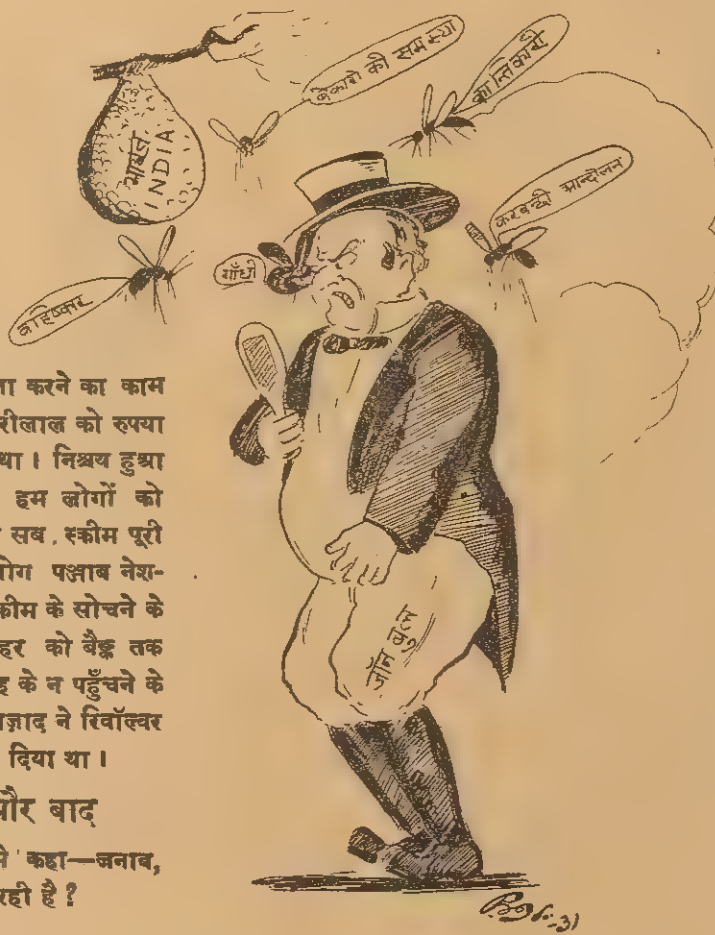 बेकारी की समस्या
क्रान्तिकारी
भारत
INDIA
करबन्दी आन्दोलन
गाँधी
बहिष्कार
ता करने का काम
रीलाल को रुपया
था । निश्चय हुआ
हम लोगों को
सब स्कीम पूरी
लोग पञ्जाब नेश-
कीम के सोचने के
हर को बैङ्क तक
ह के न पहुँचने के
आज़ाद ने रिवॉल्वर
दिया था ।
और बाद
ने कहा—जनाब,
रही है ?
जॉन बुल